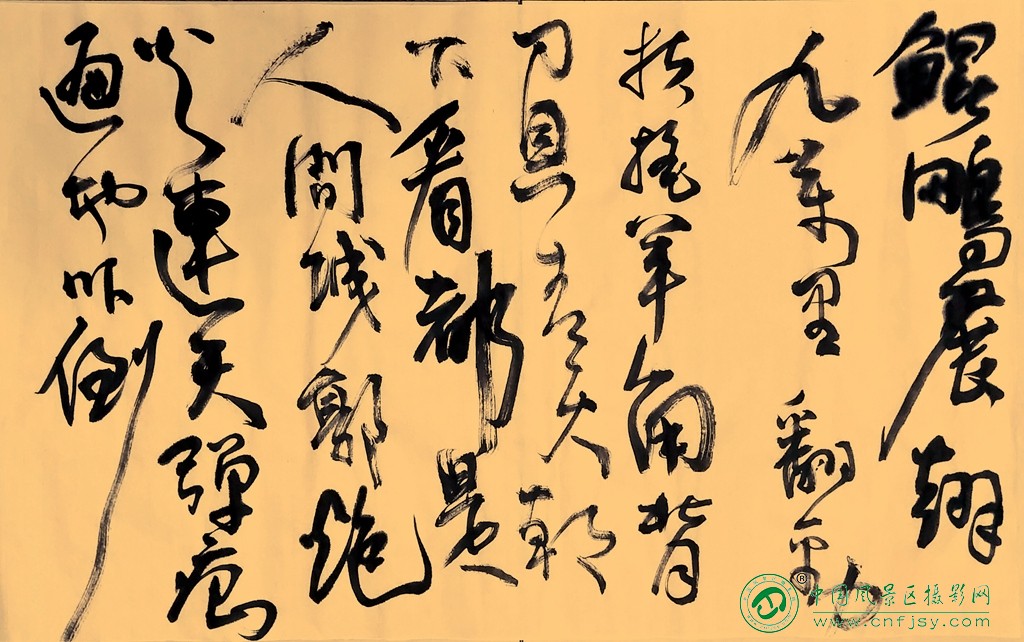 鯤鵬展翅
九萬里翻動
扶搖羊角背
負青天朝
下看都是
人間城郭炮
火連天彈痕
遍地吓倒
®
中国风景区摄影网
www.cnfjsy.com